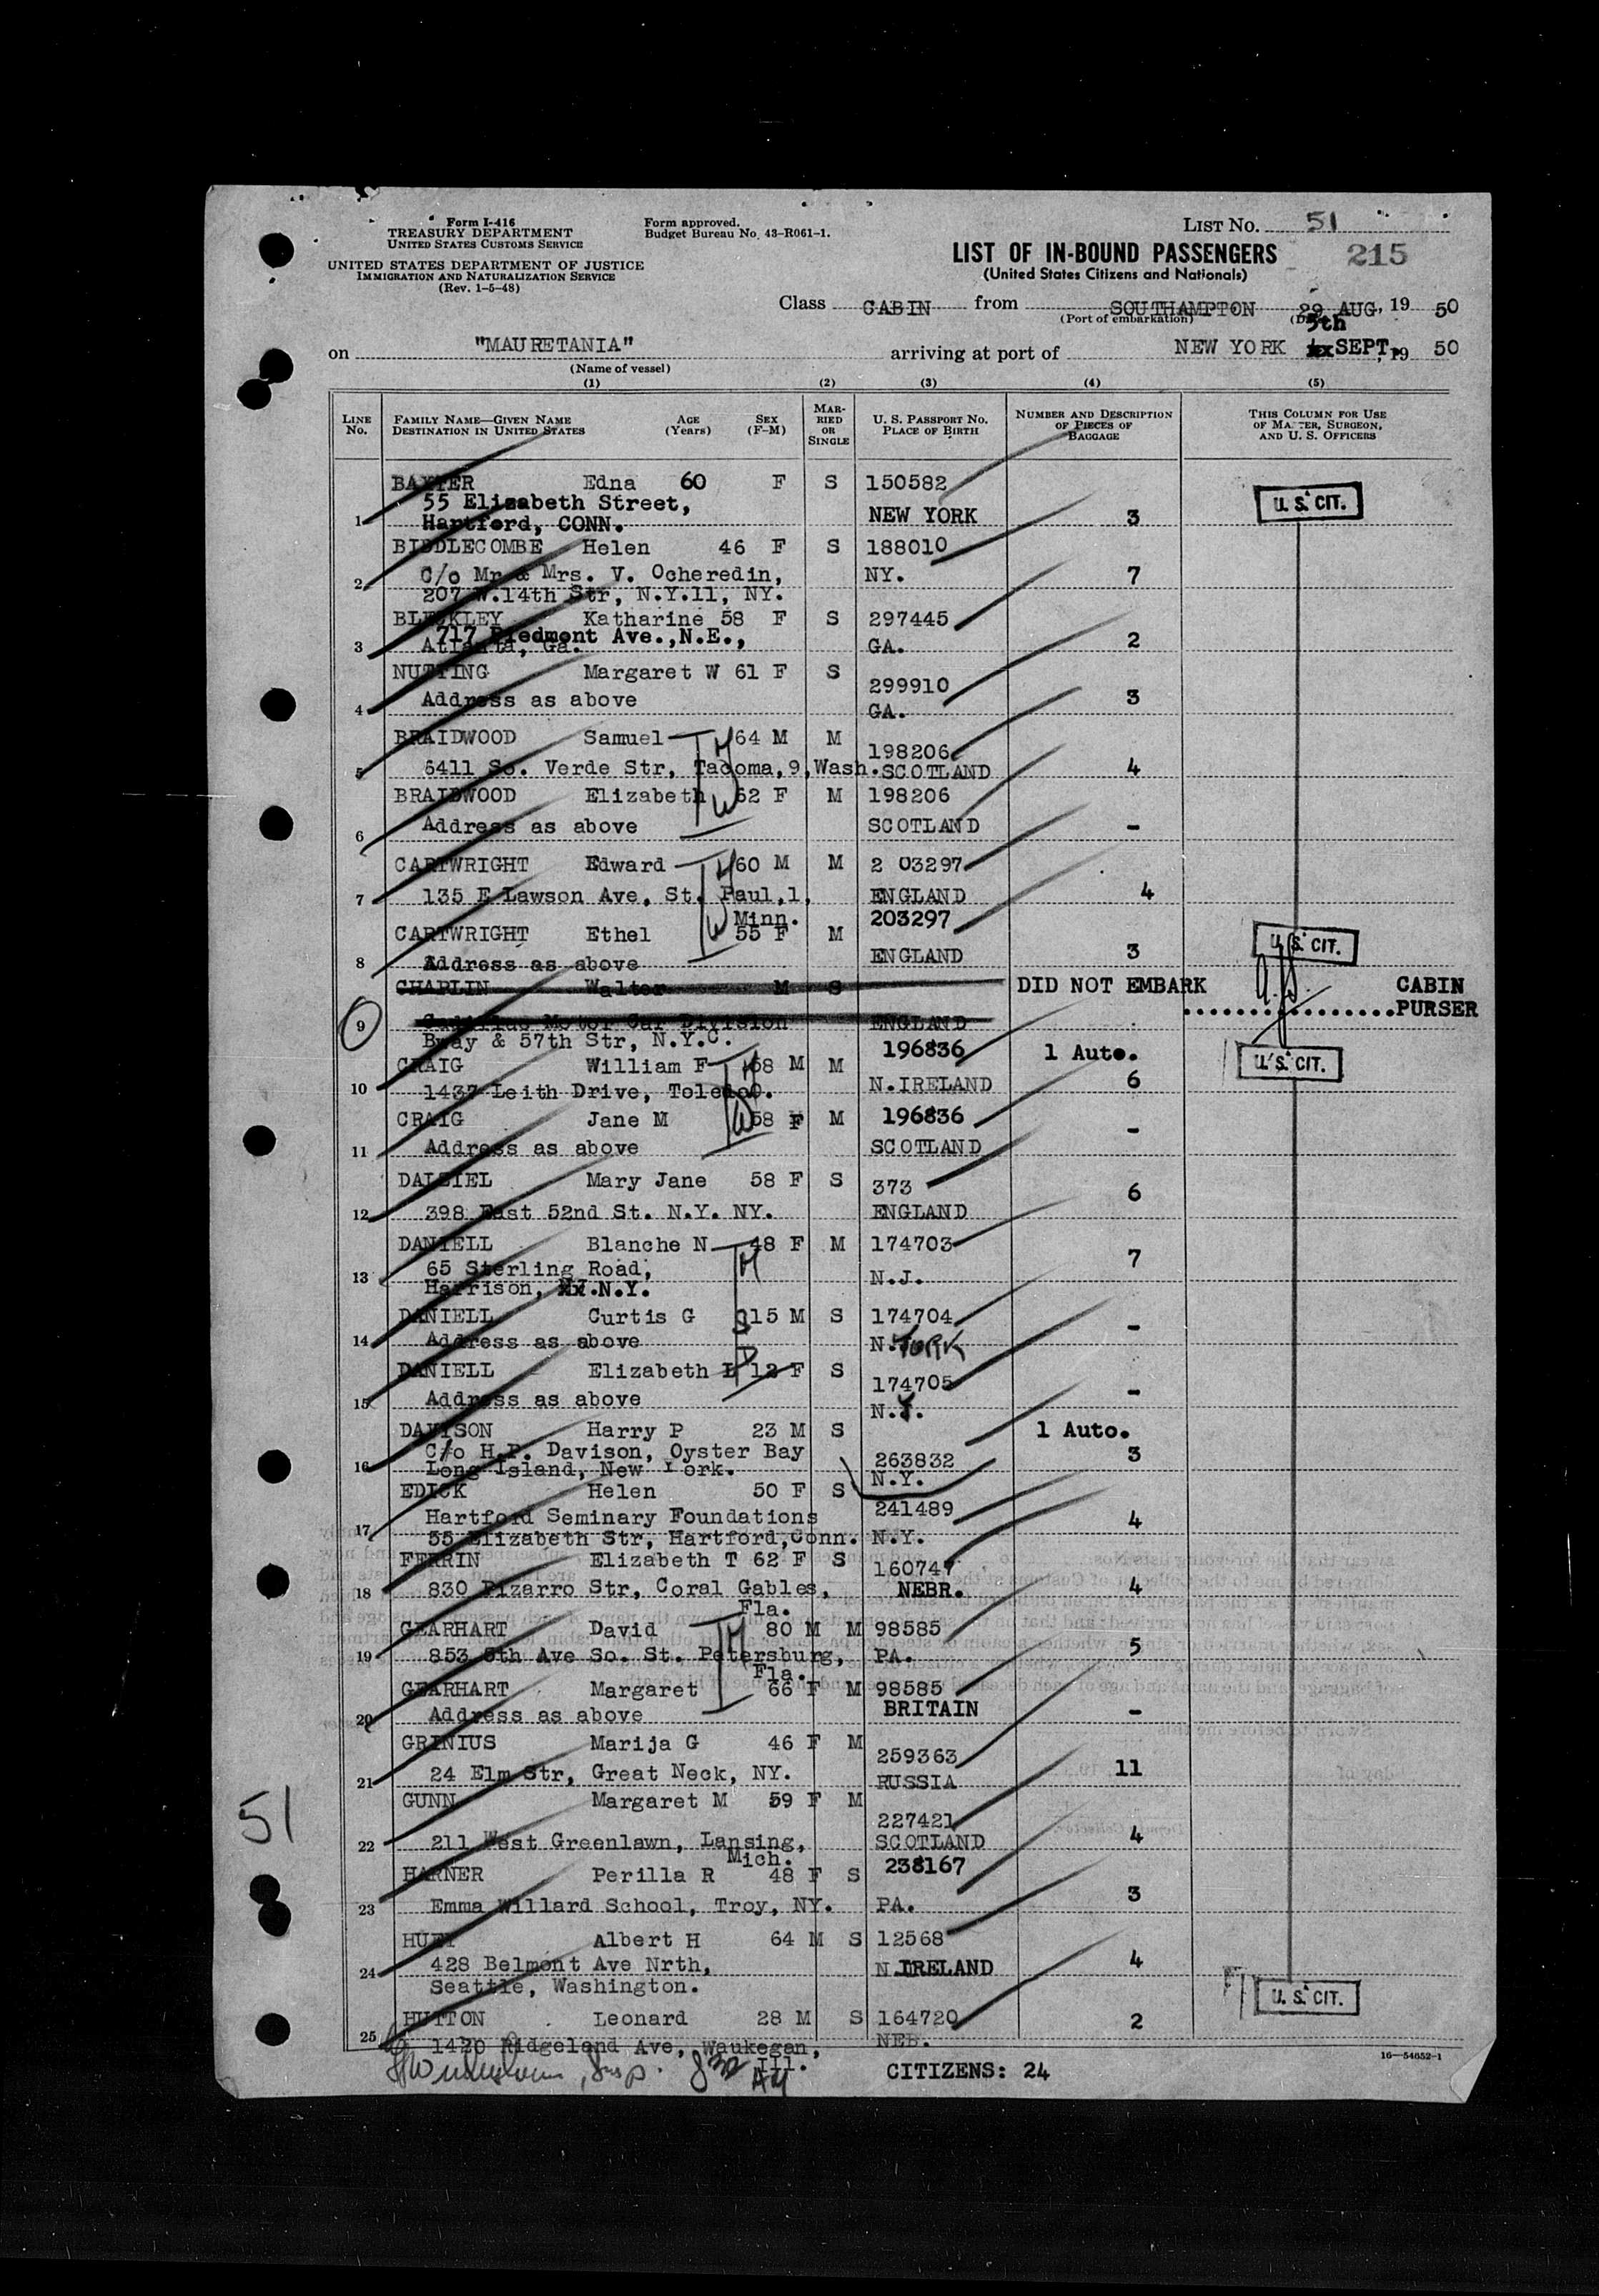 Form I-416
TREASURY DEPARTMENT
UNITED STATES CUSTOMS SERVICE
UNITED STATES DEPARTMENT OF JUSTICE
IMMIGRATION AND NATURALIZATION SERVICE
(Rev. 1-5-48)
Form approved.
Budget Bureau No. 43-R061-1.
LIST No. 51
LIST OF IN-BOUND PASSENGERS 215
(United States Citizens and Nationals)
Class CABIN from SOUTHAMPTON 29 AUG, 19 50
(Port of embarkation)
5th
on "MAURETANIA" arriving at port of NEW YORK SEPT, 19 50
(Name of vessel)
(1) (2) (3) (4) (5)
LINE No. FAMILY NAME—GIVEN NAME DESTINATION IN UNITED STATES AGE (Years) SEX (F-M) MARRIED OR SINGLE U. S. PASSPORT NO. PLACE OF BIRTH NUMBER AND DESCRIPTION OF PIECES OF BAGGAGE THIS COLUMN FOR USE OF MASTER, SURGEON, AND U. S. OFFICERS
BAXTER Edna 60 F S 150582
55 Elizabeth Street, U. S. CIT.
1 Hartford, CONN. NEW YORK 3
BIDDLECOMBE Helen 46 F S 188010
2 C/o Mr & Mrs. V. Ocheredin, NY. 7
207 W.14th Str, N.Y.11, NY.
BLECKLEY Katharine 58 F S 297445
717 Piedmont Ave.,N.E.,
3 Atlanta, Ga. GA. 2
NUTTING Margaret W 61 F S 299910
4 Address as above GA. 3
BRAIDWOOD Samuel H 64 M M 198206
5 6411 So. Verde Str, Tacoma,9,Wash. SCOTLAND 4
BRAIDWOOD Elizabeth W 62 F M 198206
6 Address as above SCOTLAND -
CARTWRIGHT Edward H 60 M M 2 03297
7 135 E Lawson Ave, St. Paul,1, ENGLAND 4
Minn.
CARTWRIGHT Ethel W 55 F M 203297 U. S. CIT.
8 Address as above ENGLAND 3
CHAPLIN Walter M S DID NOT EMBARK CABIN
PURSER
9 Cadillac Motor Car Division ENGLAND
Bway & 57th Str, N.Y.C.
CRAIG William F H 68 M M 196836 1 Auto. U. S. CIT.
10 1437 Leith Drive, Toledo O. N.IRELAND 6
CRAIG Jane M W 58 F M 196836
11 Address as above SCOTLAND -
DALZIEL Mary Jane 58 F S 373
12 398 East 52nd St. N.Y. NY. ENGLAND 6
DANIELL Blanche N 48 F M 174703
65 Sterling Road, 7
13 Harrison, N.Y. N.J.
DANIELL Curtis G S 15 M S 174704
14 Address as above N.YORK -
DANIELL Elizabeth L D 12 F S 174705
15 Address as above N.Y. -
DAVISON Harry P 23 M S 1 Auto.
C/o H.P. Davison, Oyster Bay 263832
16 Long Island, New York. N.Y. 3
EDICK Helen 50 F S 241489
Hartford Seminary Foundations 4
17 55 Elizabeth Str, Hartford,Conn. N.Y.
FERRIN Elizabeth T 62 F S 160747
18 830 Pizarro Str, Coral Gables, NEBR. 4
Fla.
GEARHART David H 80 M M 98585
19 853 8th Ave So. St. Petersburg, PA. 5
Fla.
GEARHART Margaret 66 F M 98585
20 Address as above BRITAIN -
GRINIUS Marija G 46 F M 259363
21 24 Elm Str, Great Neck, NY. RUSSIA 11
GUNN Margaret M 59 F M 227421
22 211 West Greenlawn, Lansing, SCOTLAND 4
Mich.
HARNER Perilla R 48 F S 238167
23 Emma Willard School, Troy, NY. PA. 3
HUEY Albert H 64 M S 12568
24 428 Belmont Ave Nrth, N.IRELAND 4
Seattle, Washington. U. S. CIT.
HUTTON Leonard 28 M S 164720 2
25 1420 Ridgeland Ave, Waukegan, NEB.
Ill.
CITIZENS: 24
16—54652-1
51